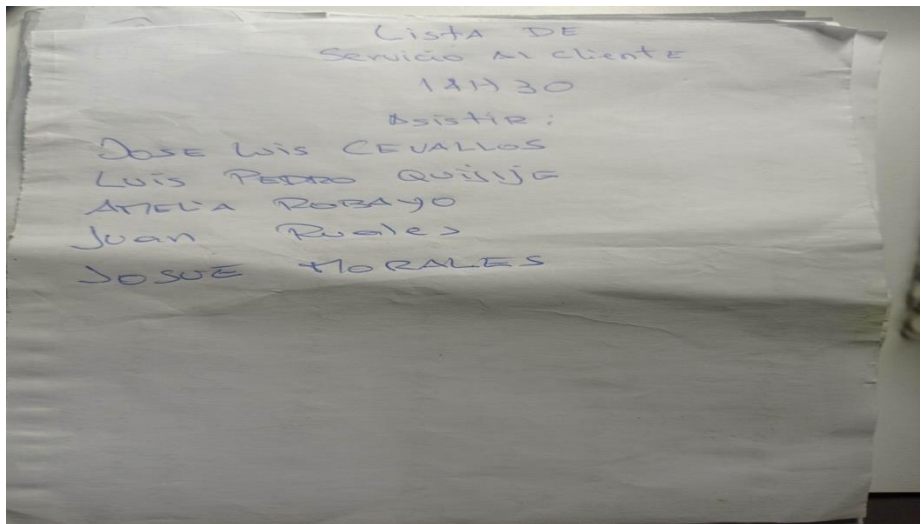 Lista DE
Servicio Al cliente
14H30
Asistir:
JOSE Luis CEVALLOS
LUIS PEDRO QUIJIJE
AMELIA ROBAYO
Juan Ruales
JOSUE MORALES